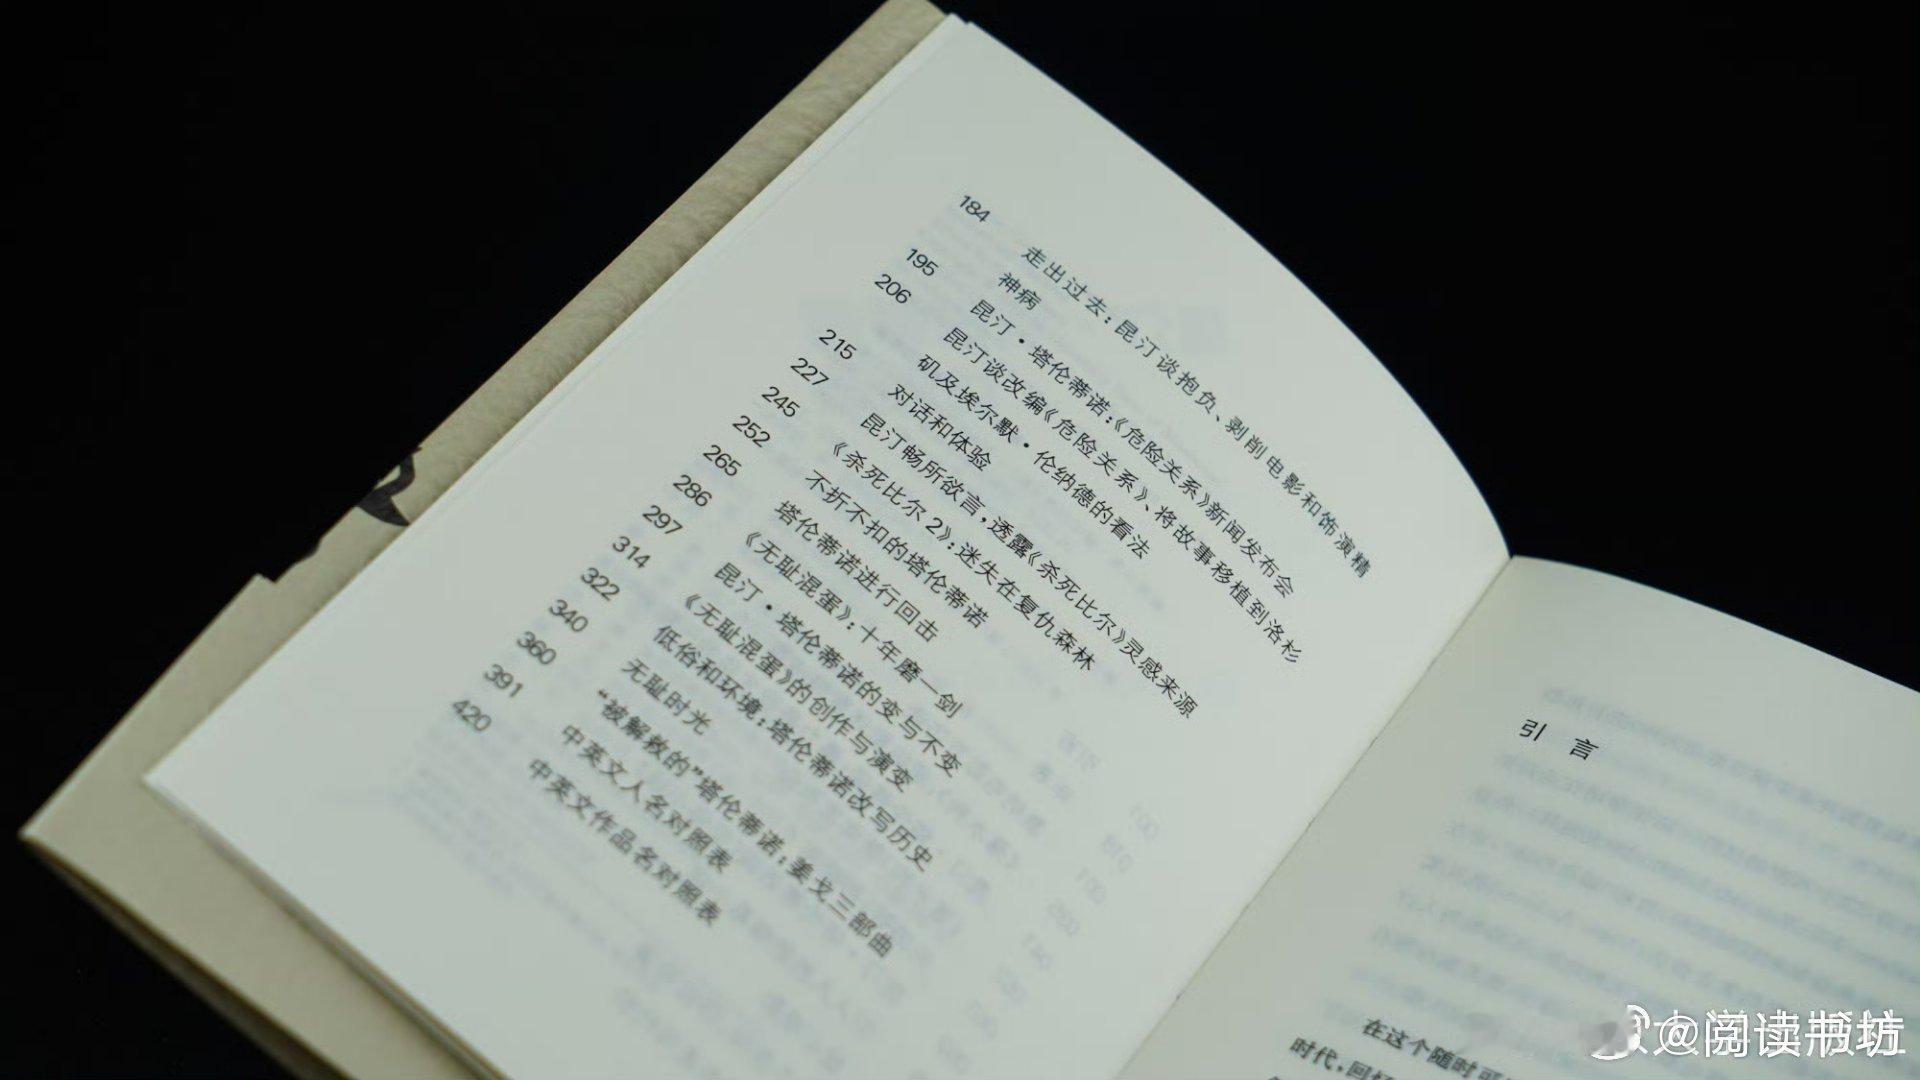 184 走出过去：昆汀谈抱负、剥削电影和饰演精
神病
195 昆汀·塔伦蒂诺：《危险关系》新闻发布会
206 昆汀谈改编《危险关系》、将故事移植到洛杉
矶及埃尔默·伦纳德的看法
215 对话和体验
227 昆汀畅所欲言，透露《杀死比尔》灵感来源
245 《杀死比尔2》：迷失在复仇森林
252 不折不扣的塔伦蒂诺
265 塔伦蒂诺进行回击
286 《无耻混蛋》：十年磨一剑
297 昆汀·塔伦蒂诺的变与不变
314 《无耻混蛋》的创作与演变
322 低俗和环境：塔伦蒂诺改写历史
340 无耻时光
360 “被解救的”塔伦蒂诺：姜戈三部曲
391 中英文人名对照表
420 中英文作品名对照表
引言
在这个随时可
时代，回
@阅读书坊